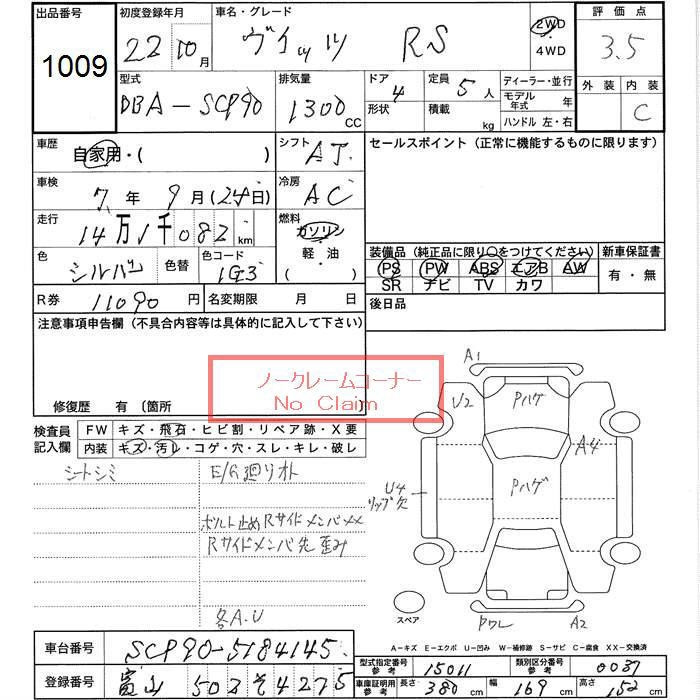 出品番号 初度登録年月 車名・グレード 評価点
1009 22 10月 ヴィッツ RS 2WD・4WD 3.5
型式 排気量 ドア 定員 ディーラー・並行 外装 内装
DBA-SCP90 1300CC 4 5人 モデル年式 年 C
形状 積載 kg ハンドル 左・右
車歴 自家用・( ) シフト AT セールスポイント (正常に機能するものに限ります)
車検 7年 9月 (24日) 冷房 AC
走行 14万1千082km 燃料 ガソリン・軽油 ( )
色 シルバー 色替 色コード 1G3
装備品 (純正品に限り○をつけてください) 新車保証書
PS PW ABS エアB AW 有・無
SR ナビ TV カワ
R券 11090円 名変期限 月 日 後日品
注意事項申告欄 (不具合内容等は具体的に記入して下さい)
ノークレームコーナー
No Claim
修復歴 有 〔箇所 〕
検査員記入欄 FW キズ・飛石・ヒビ割・リペア跡・X要
内装 キズ・汚レ・コゲ・穴・スレ・キレ・破レ
シートシミ E/G廻りオト
ボルト止めRサイドメンバXX
Rサイドメンバ先歪み
各A.U
A1
U2 Pハゲ
A4
U4 Pハゲ
リップ欠
スペア Pワレ A2
A-キズ E-エクボ U-凹み W-補修跡 S-サビ C-腐食 XX-交換済
車台番号 SCP90-5184145 型式指定番号 参考 15011 類別区分番号 参考 0037
登録番号 富山 502 そ 4275 車庫証明用参考 長さ 380cm 幅 169cm 高さ 152cm